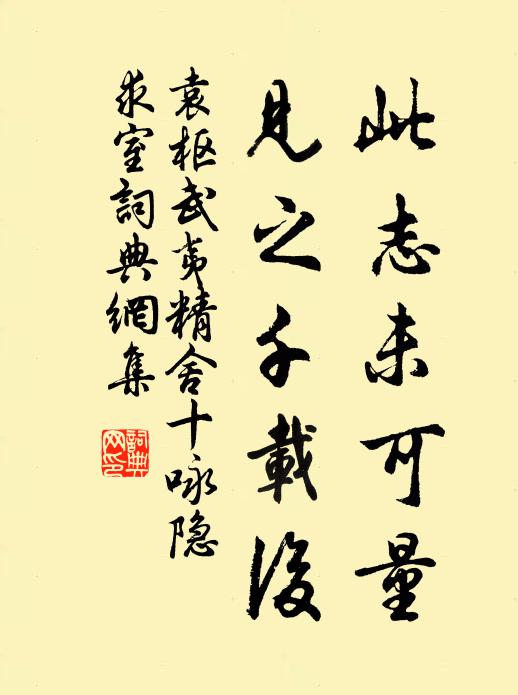 此志未可量
見之千載後
袁枢武夷精舍十咏隐
求室詞典網集
詞典
网印